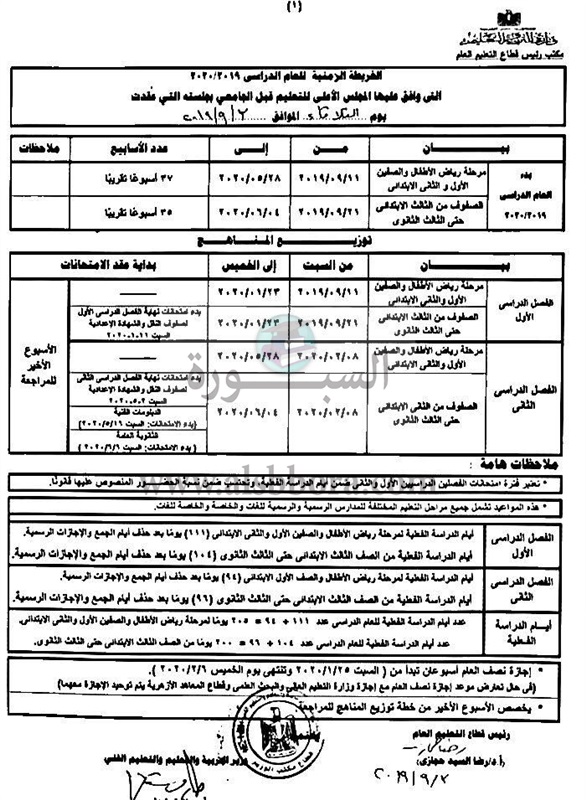 (١)
مكتب رئيس قطاع التعليم العام
الخريطة الزمنية للعام الدراسى ٢٠٢٠/٢٠١٩
التى وافق عليها المجلس الأعلى للتعليم قبل الجامعي بجلسته التي عقدت
يوم الثلاثاء الموافق ٢٠١٩/٩/٣
بيـــان مـــن إلـــى عدد الأسابيع ملاحظات
بدء العام الدراسى ٢٠٢٠/٢٠١٩
مرحلة رياض الأطفال والصفين الأول و الثانى الابتدائى ٢٠١٩/٠٩/١١ ٢٠٢٠/٠٥/٢٨ ٣٧ أسبوعًا تقريبًا
الصفوف من الثالث الابتدائى حتى الثالث الثانوى ٢٠١٩/٠٩/٢١ ٢٠٢٠/٠٦/٠٤ ٣٥ أسبوعًا تقريبًا
توزيـــع المنـــاهـــج
بيـــان من السبت إلى الخميس بداية عقد الامتحانات
الفصل الدراسى الأول
مرحلة رياض الأطفال والصفين الأول والثانى الابتدائى ٢٠١٩/٠٩/١١ ٢٠٢٠/٠١/٢٣
الصفوف من الثالث الابتدائى حتى الثالث الثانوى ٢٠١٩/٠٩/٢١ ٢٠٢٠/٠١/٢٣
بدء امتحانات نهاية الفصل الدراسى الأول لصفوف النقل والشهادة الإعدادية
الأسبوع الأخير للمراجعة
الفصل الدراسى الثانى
مرحلة رياض الأطفال والصفين الأول و الثانى الابتدائى ٢٠٢٠/٠٢/٠٨ ٢٠٢٠/٠٥/٢٨
الصفوف من الثانى الابتدائى حتى الثالث الثانوى ٢٠٢٠/٠٢/٠٨ ٢٠٢٠/٠٦/٠٤
بدء امتحانات نهاية الفصل الدراسى الثانى لصفوف النقل والشهادة الإعدادية
الدبلومات الفنية
(بدء الامتحانات: السبت ٢٠٢٠/٥/١٦)
الثانوية العامة
(بدء الامتحانات: السبت ٢٠٢٠/٦/٦)
السبورة
ملاحظات هامة :
• تعتبر فترة امتحانات الفصلين الدراسيين الأول والثانى ضمن أيام الدراسة الفعلية، وتحتسب ضمن نسبة الحضـــور المنصوص عليها قانونًا.
• هذه المواعيد تشمل جميع مراحل التعليم المختلفة للمدارس الرسمية والرسمية للغات والخاصة والخاصة للغات.
الفصل الدراسى الأول
أيام الدراسة الفعلية لمرحلة رياض الأطفال والصفين الأول والثانى الابتدائى (١١١) يومًا بعد حذف أيام الجمع والإجازات الرسمية.
أيام الدراسة الفعلية من الصف الثالث الابتدائى حتى الثالث الثانوى (١٠٤) يومًا بعد حذف أيام الجمع والإجازات الرسمية.
الفصل الدراسى الثانى
أيام الدراسة الفعلية لمرحلة رياض الأطفال والصف الأول الابتدائى (٩٤) يومًا بعد حذف أيام الجمع والإجازات الرسمية.
أيام الدراسة الفعلية من الصف الثالث الابتدائى حتى الثالث الثانوى (٩٦) يومًا بعد حذف أيام الجمع والإجازات الرسمية.
أيام الدراسة الفعلية
عدد أيام الدراسة الفعلية للعام الدراسى عدد ١١١ + ٩٤ = ٢٠٥ يومًا لمرحلة رياض الأطفال والصفين الأول والثانى الابتدائى.
عدد أيام الدراسة الفعلية للعام الدراسى عدد ١٠٤ + ٩٦ = ٢٠٠ يومًا من الصف الثالث الابتدائى حتى الثالث الثانوى.
• إجازة نصف العام أسبوعان تبدأ من ( السبت ٢٠٢٠/١/٢٥ وتنتهى يوم الخميس ٢٠٢٠/٢/٦ ).
(فى حال تعارض موعد إجازة نصف العام مع إجازة وزارة التعليم العالى والبحث العلمى وقطاع المعاهد الأزهرية يتم توحيد الإجازة معهما)
• يخصص الأسبوع الأخير من خطة توزيع المناهج للمراجعة
رئيس قطاع التعليم العام
(أ.د/رضا السيد حجازى)
٢٠١٩/٩/٣
يعتمد
وزير التربية والتعليم والتعليم الفني